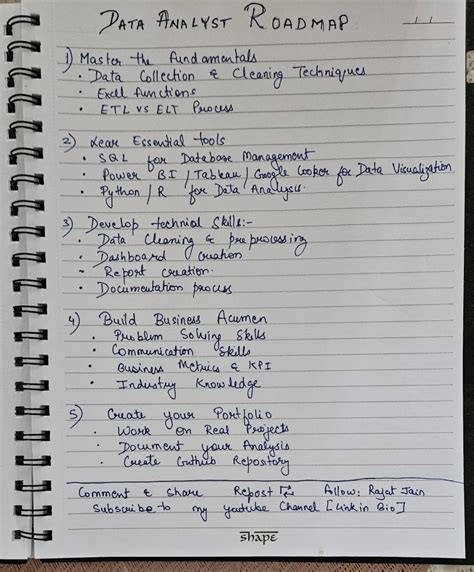 DATA ANALYST ROADMAP
1) Master the fundamentals
• Data Collection & Cleaning Techniques
• Excel functions
• ETL vs ELT Process
2) Lear Essential tools
• SQL for Database Management
• Power BI / Tableau / Google Cooper for Data Visualization
• Python / R for Data Analysis.
3) Develop technial Skills:-
• Data Cleaning & preprocessing
• Dashboard creation
- Report creation.
• Documentation process
4) Build Business Acumen
• Problem Solving Skills
• Communication Skills
• Business Metrics & KPI
• Industry Knowledge
5) Create your Portfolio
• Work on Real Projects
• Document your Analysis
• Create Github Repostory
Comment & share Repost Follow: Rajat Jain
Subscribe to my youtube Channel [Link in Bio]
shape